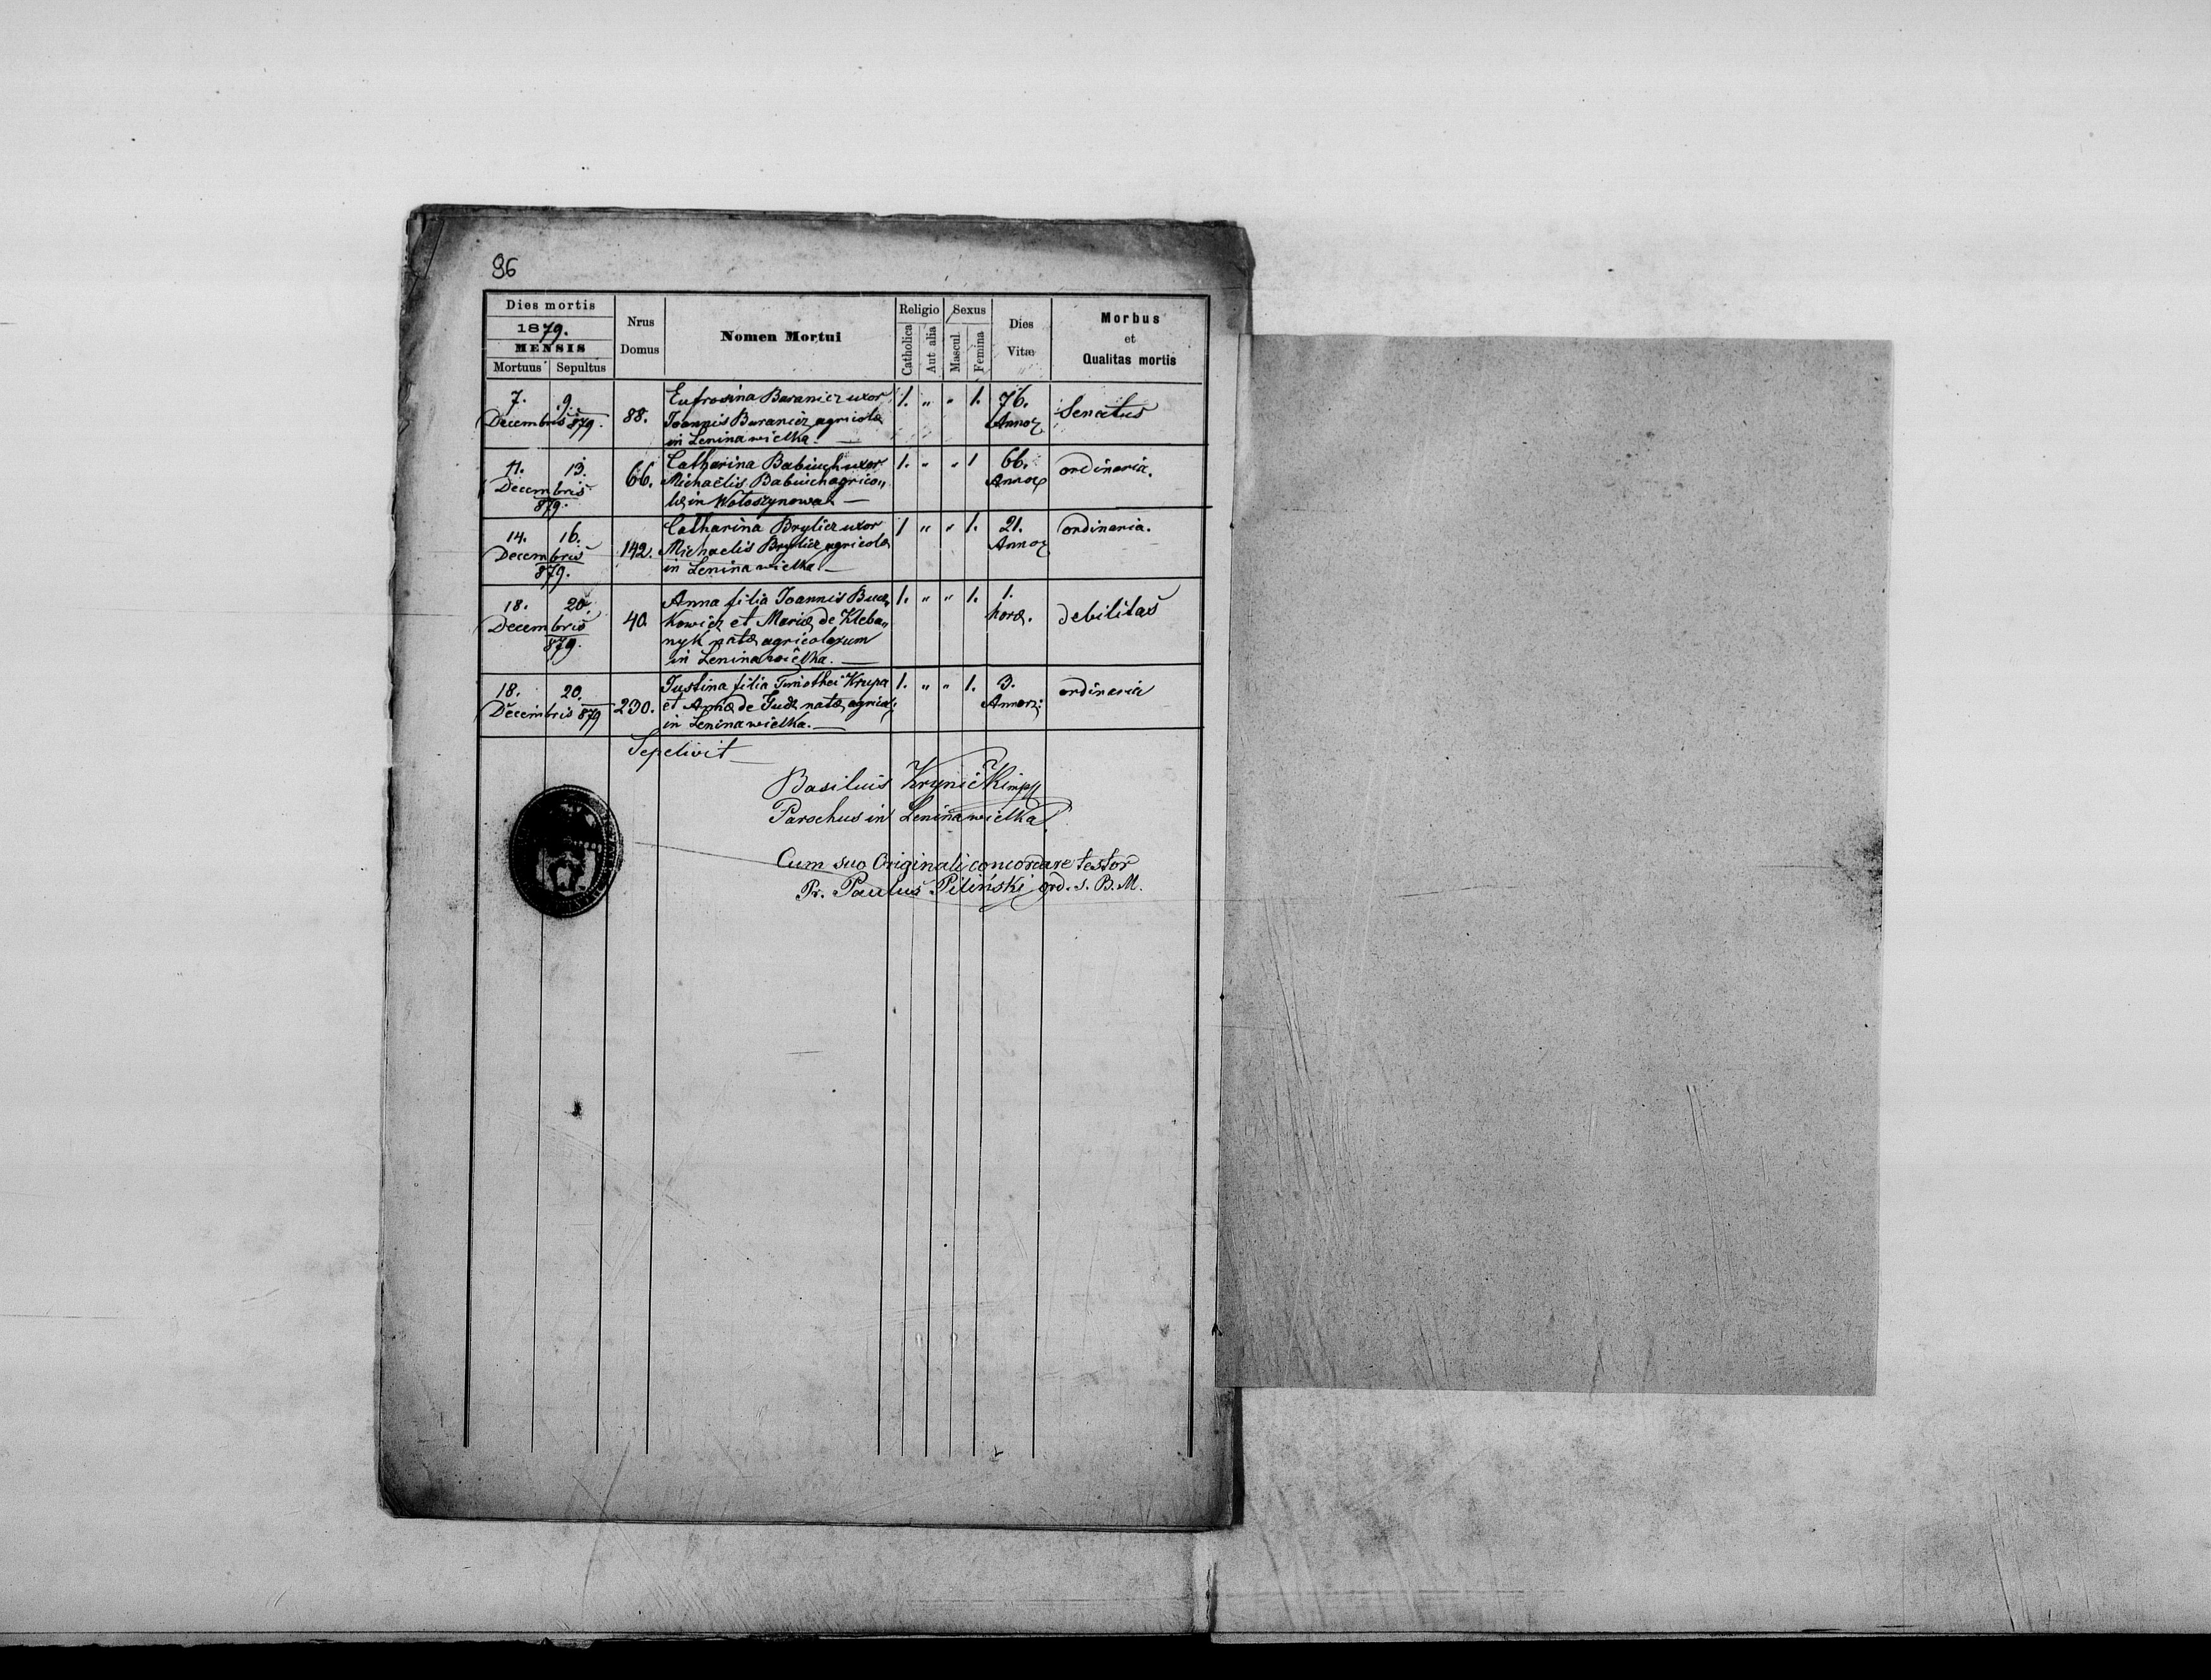 96
Dies mortis
1879.
MENSIS
Mortuus Sepultus
Nrus Domus
Nomen Mortui
Religio
Catholica
Aut alia
Sexus
Mascul.
Femina
Dies Vitæ
Morbus
et
Qualitas mortis
7. 9.
Decembris 879.
88.
Eufrosina Baranicz uxor
Joannis Baranicz agricolæ
in Leninawielka.
1. „ „ 1.
76.
Annor
Senectus
11. 13.
Decembris
879.
66.
Catharina Babiuch uxor
Michaëlis Babiuch agrico„
læ in Wołoszynowa
1. „ „ 1
66.
Annor
ordinaria.
14. 16.
Decembris
879.
142.
Catharina Brylicz uxor
Michaelis Brylicz agricolæ
in Leninawielka.
1 „ „ 1.
21.
Annor
ordinaria.
18. 20.
Decembris
879.
40.
Anna filia Joannis
kowicz et Mariæ de Kleba„
nyk natæ agricolarum
in Leninawielka.
1. „ „ 1.
1.
horæ.
debilitas
18. 20.
Decembris 879
230.
Justina filia Timothei Krupa
et Annæ de natæ agricol:
in Leninawielka.
1. „ „ 1.
3.
Annor:
ordinaria
Sepelivit
Basilius Krynicki mpp
Parochus in Leninawielka
Cum suo Originali concordare testor
Pr. Paulus Piliński ord. s. B. M.